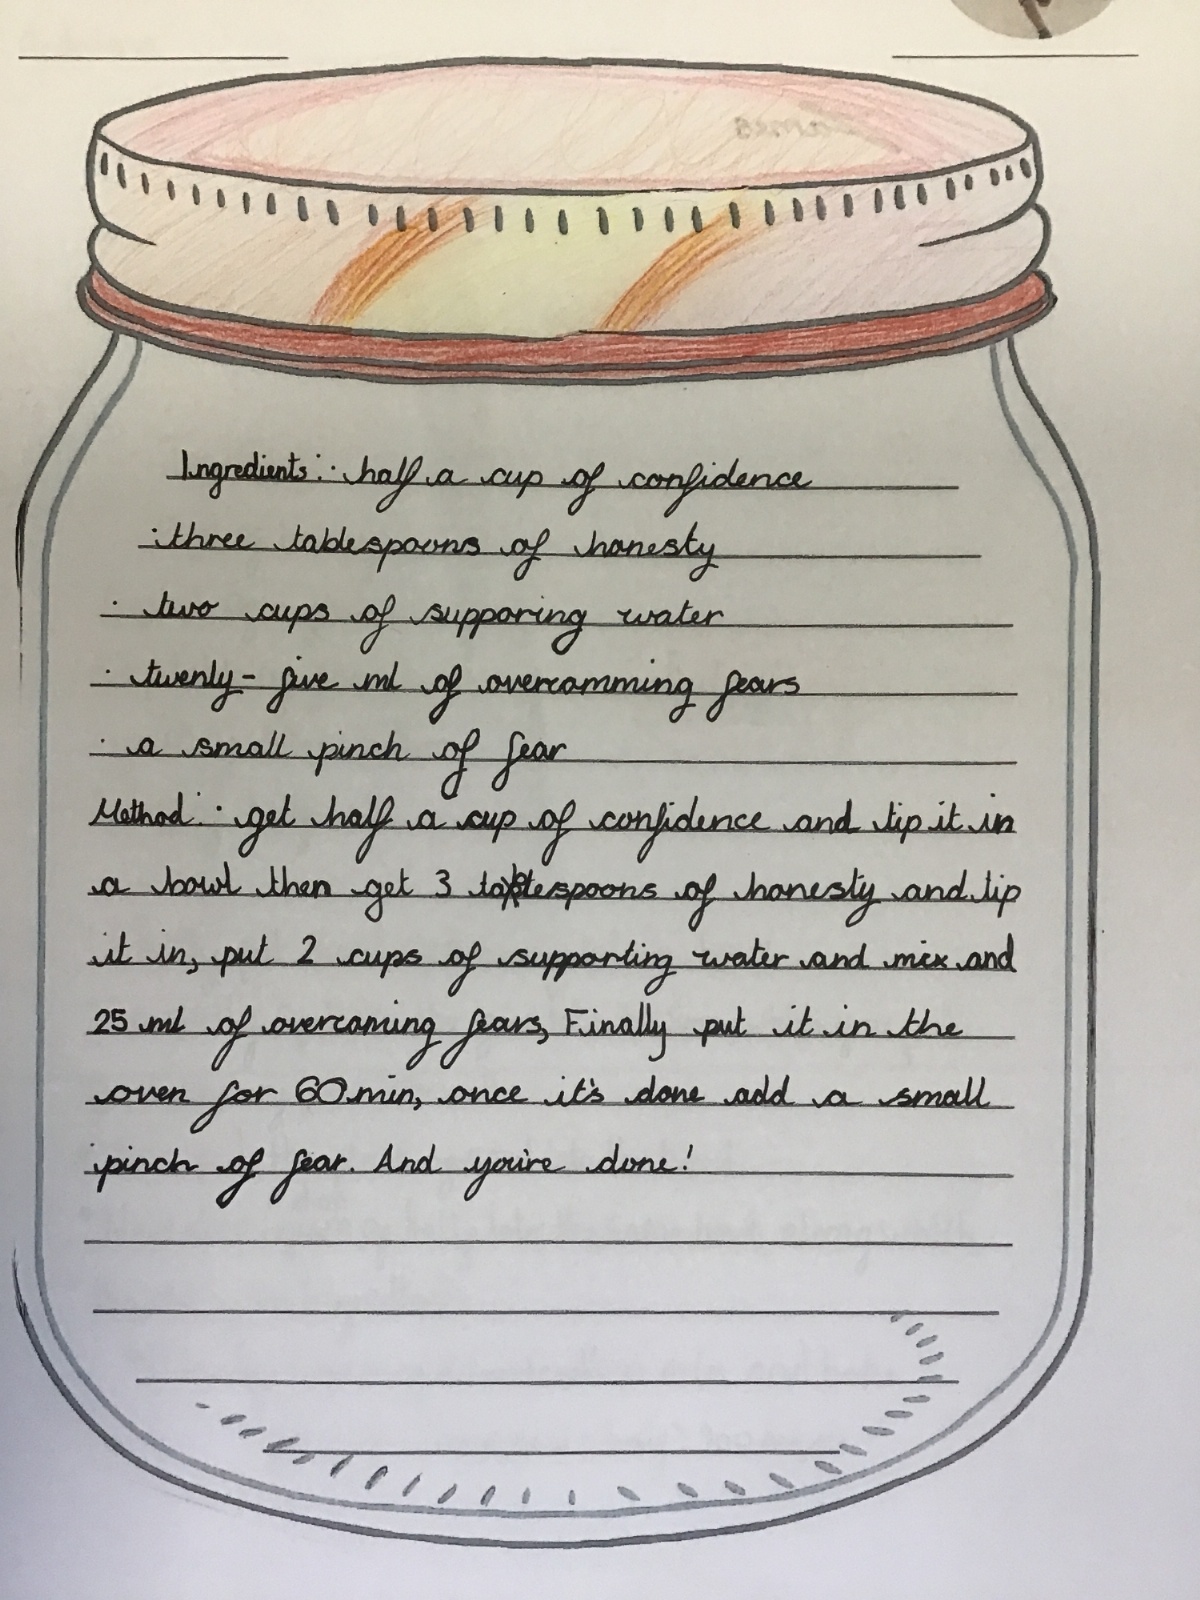 Ingredients: · half a cup of confidence
· three tablespoons of honesty
· two cups of supporing water
· twenty-five ml of overcomming fears
· a small pinch of fear
Method: · get half a cup of confidence and tip it in
a bowl then get 3 tablespoons of honesty and tip
it in, put 2 cups of supporting water and mix and
25 ml of overcoming fears, Finally put it in the
oven for 60 min, once it's done add a small
pinch of fear. And you're done!